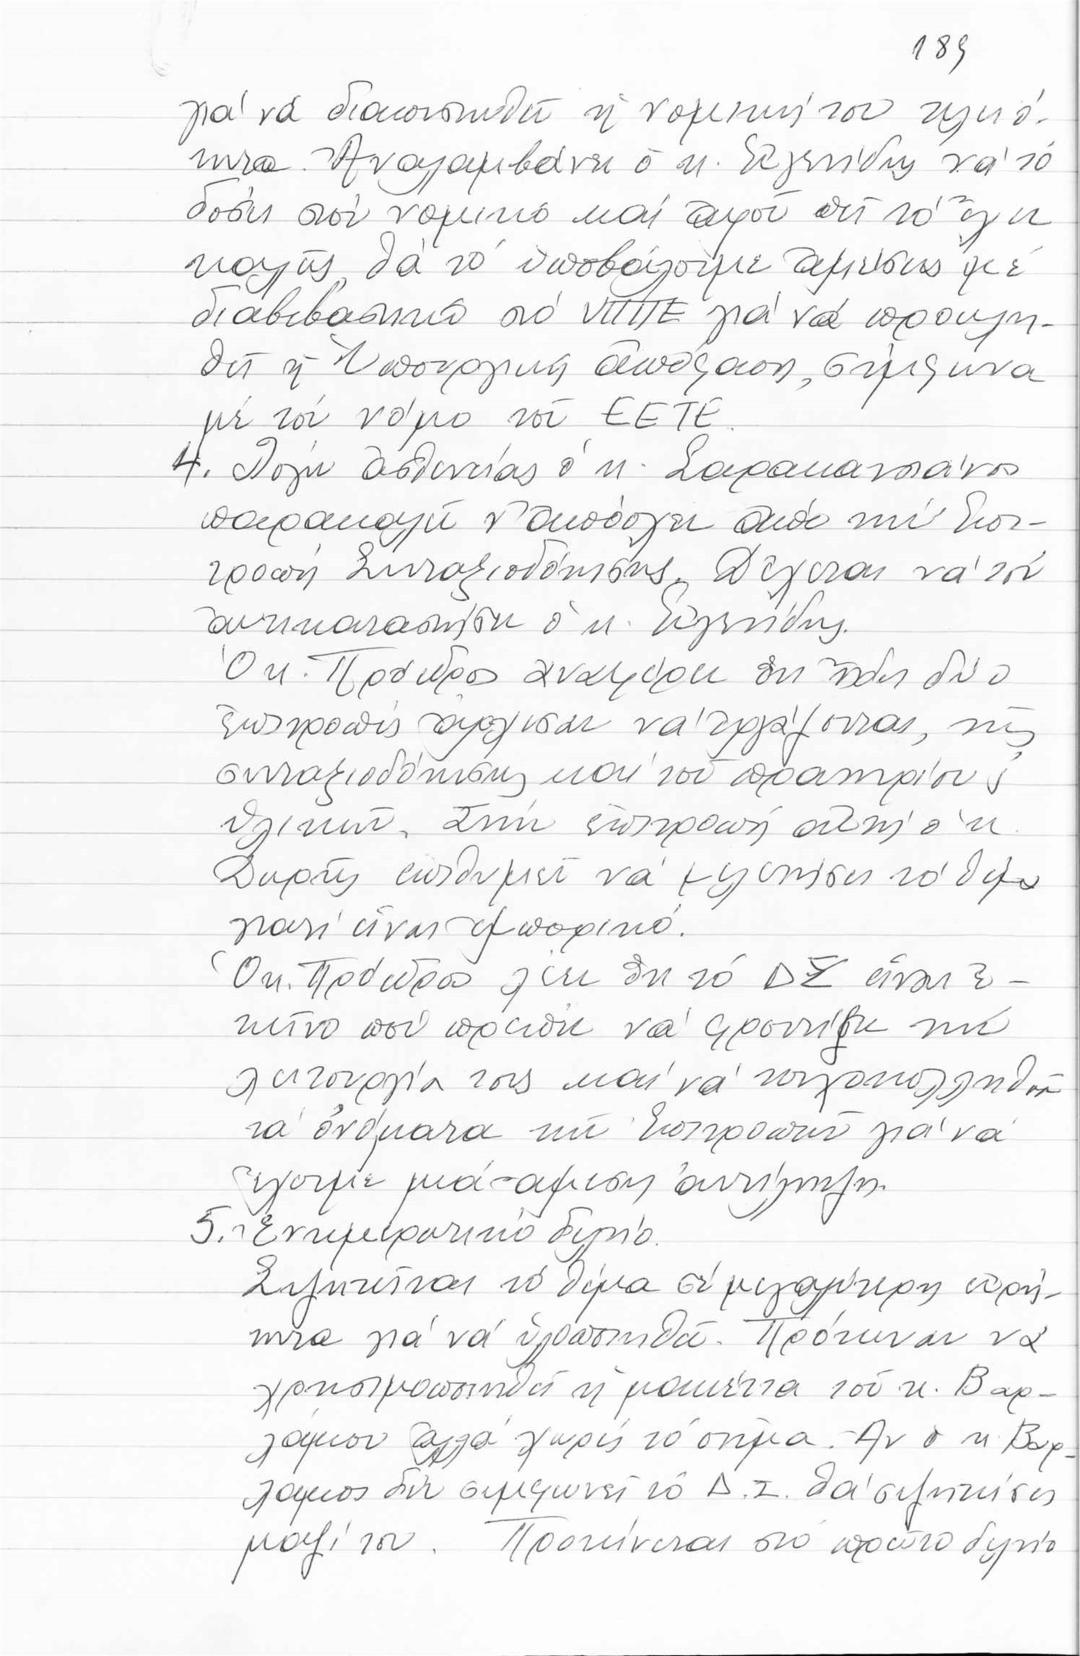 189
γιά νά διαπιστωθεῖ ἡ νομική του πληρό-
τητα. Ἀναλαμβάνει ὁ κ. Εὐγενίδης νά τό
δώσει στόν νομικό καί ἀφοῦ πεῖ τό ἔχει
καλῶς, θά τό ὑποβάλουμε ἀμέσως μέ
διαβιβαστικό στό ΥΠΠΕ γιά νά προκλη-
θεῖ ἡ Ὑπουργική ἀπόφαση, σύμφωνα
μέ τόν νόμο τοῦ ΕΕΤΕ.
4. Λόγω ἀσθενείας ὁ κ. Σαρακατσιάνος
παρακαλεῖ ν' ἀπόσχει ἀπό τήν Ἐπι-
τροπή Συνταξιοδότησης. Δέχεται νά τόν
ἀντικαταστήσει ὁ κ. Εὐγενίδης.
Ὁ κ. Πρόεδρος ἀναφέρει ὅτι ἤδη δύο
ἐπιτροπές ἄρχισαν νά ἐργάζονται, τῆς
συνταξιοδότησης καί τοῦ πρατηρίου
ὑλικῶν. Στήν ἐπιτροπή αὐτή ὁ κ.
ἐπιθυμεῖ νά μελετήσει τό θέμα
γιατί εἶναι ἐμπορικό.
Ὁ κ. Πρόεδρος λέει ὅτι τό ΔΣ εἶναι ἐ-
κεῖνο πού πρέπει νά φροντίσει τήν
λειτουργία τους καί νά τοιχοκολληθοῦν
τά ὀνόματα τῶν Ἐπιτροπῶν γιά νά
ἔχουμε μιά ἄμεση ἀντίληψη.
5. Ἐνημερωτικό δελτίο.
Συζητεῖται τό θέμα σέ μεγαλύτερη εὐρύ-
τητα γιά νά ὑλοποιηθεῖ. Πρόκειται νά
χρησιμοποιηθεῖ ἡ μακέττα τοῦ κ. Βαρ-
λάμου ἀλλά χωρίς τό σῆμα. Ἄν ὁ κ Βαρ-
λάμος δέν συμφωνεῖ τό Δ.Σ. θά συζητήσει
μαζί του. Προτείνεται στό πρῶτο δελτίο